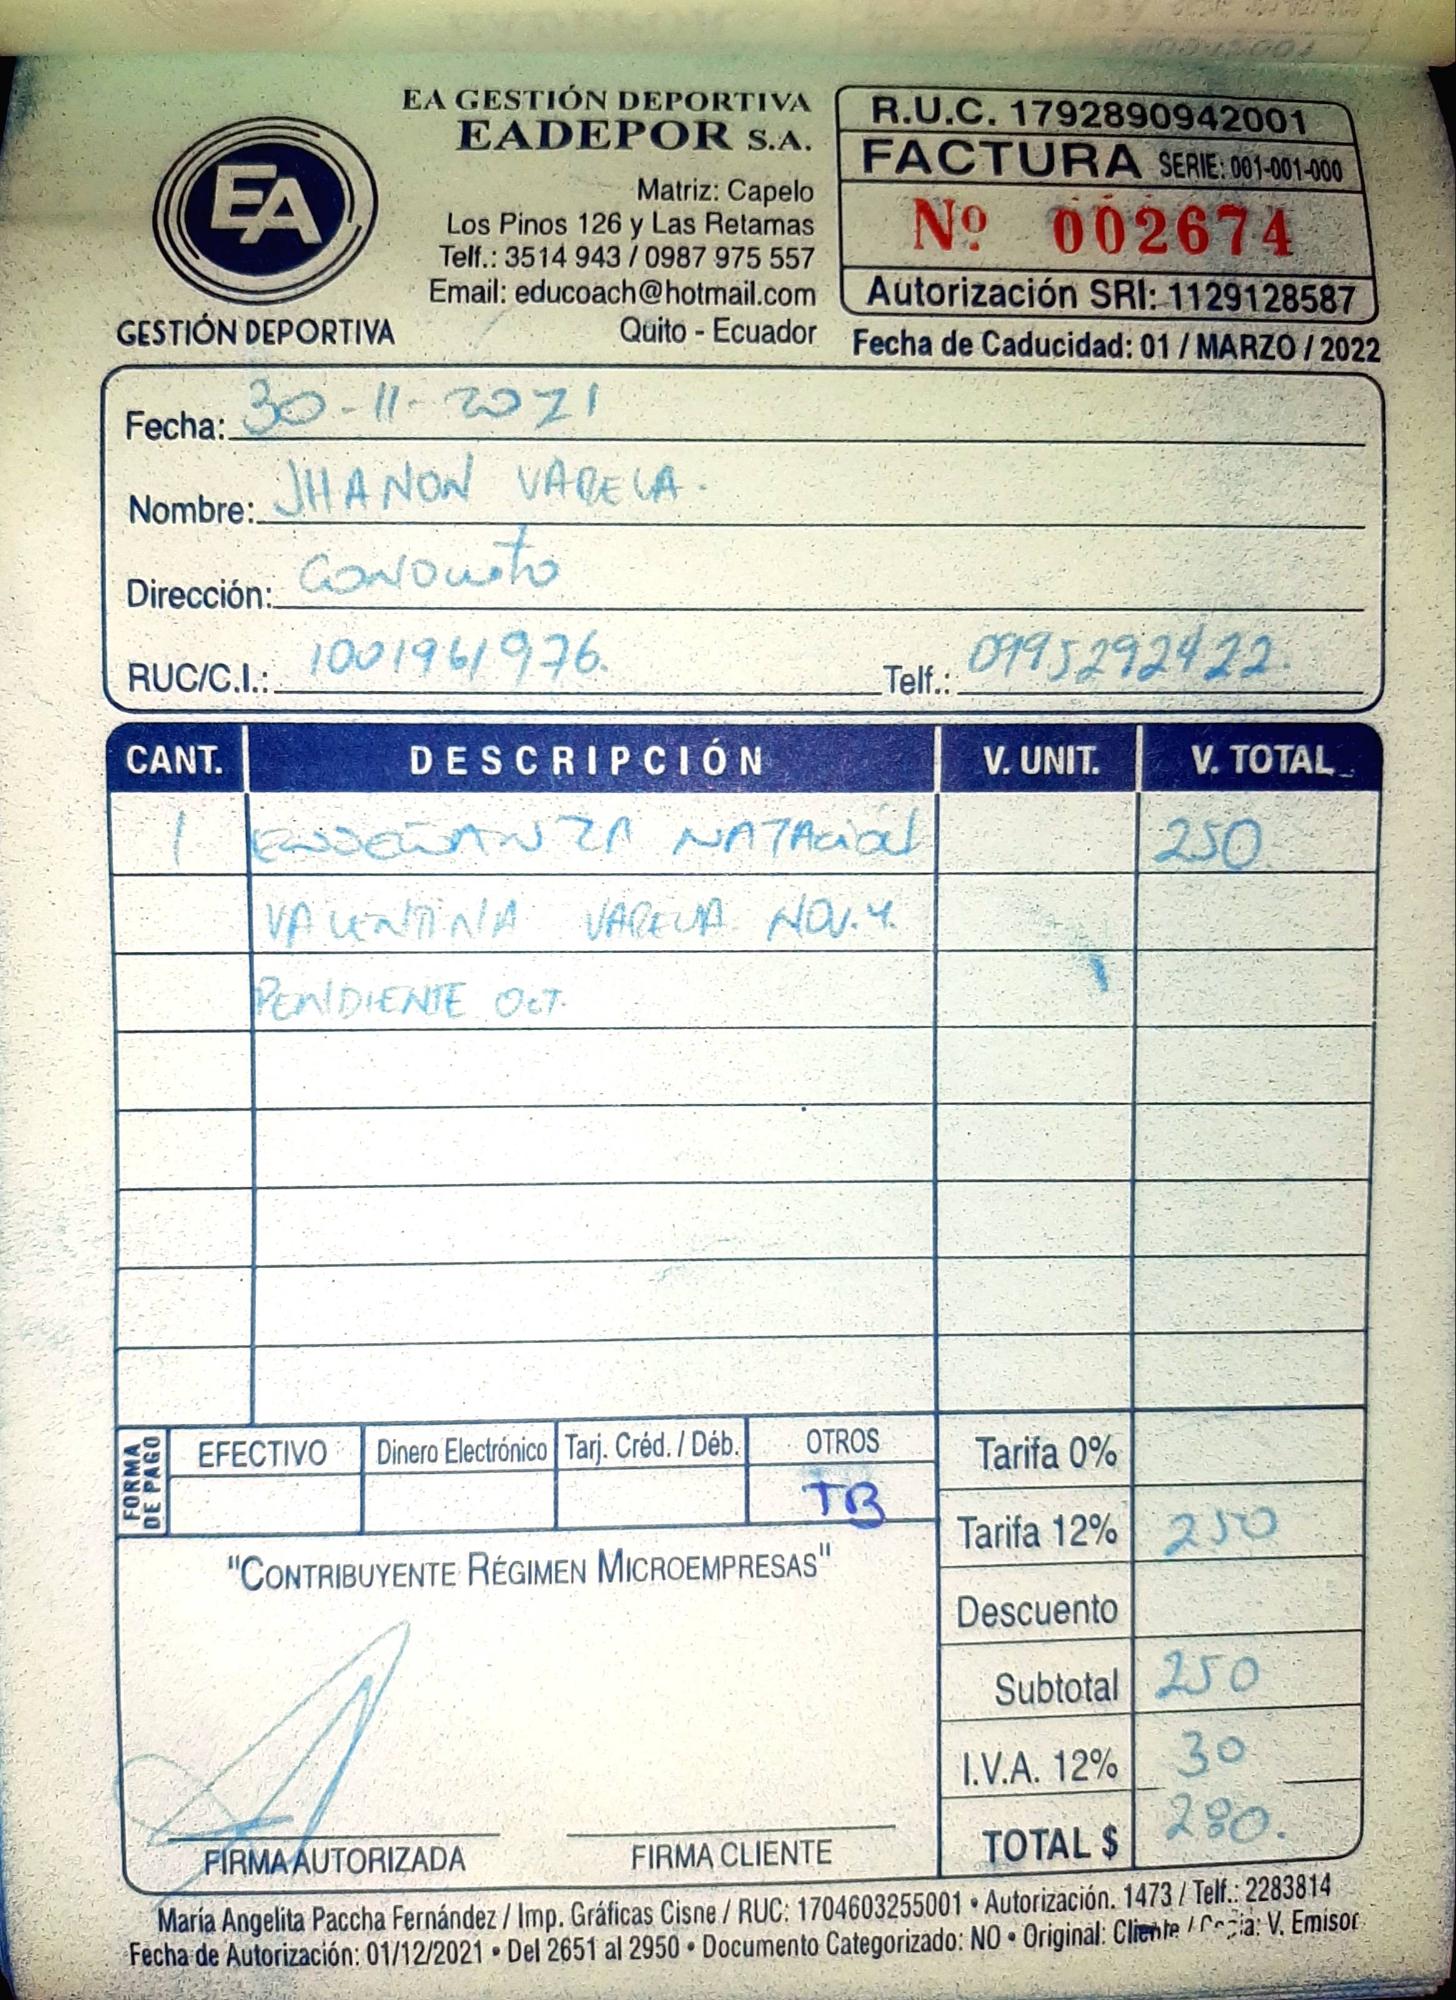 EA GESTIÓN DEPORTIVA
EADEPOR S.A.
Matriz: Capelo
Los Pinos 126 y Las Retamas
Telf.: 3514 943 / 0987 975 557
Email: educoach@hotmail.com
Quito - Ecuador
EA
GESTIÓN DEPORTIVA
R.U.C. 1792890942001
FACTURA SERIE: 001-001-000
Nº 002674
Autorización SRI: 1129128587
Fecha de Caducidad: 01 / MARZO / 2022
Fecha: 30-11-2021
Nombre: JHANON VARELA.
Dirección: Conocoto
RUC/C.I.: 1001961976. Telf.: 0995292422.
CANT. DESCRIPCIÓN V. UNIT. V. TOTAL
1 ENSEÑANZA NATACIÓN 250
VALENTINA VARELA NOV. Y.
PENDIENTE OCT.
FORMA DE PAGO
EFECTIVO Dinero Electrónico Tarj. Créd. / Déb. OTROS
TB
Tarifa 0%
Tarifa 12% 250
Descuento
Subtotal 250
I.V.A. 12% 30
TOTAL $ 280.
"CONTRIBUYENTE RÉGIMEN MICROEMPRESAS"
FIRMA AUTORIZADA FIRMA CLIENTE
María Angelita Paccha Fernández / Imp. Gráficas Cisne / RUC: 1704603255001 • Autorización. 1473 / Telf.: 2283814
Fecha de Autorización: 01/12/2021 • Del 2651 al 2950 • Documento Categorizado: NO • Original: Cliente / Copia: V. Emisor